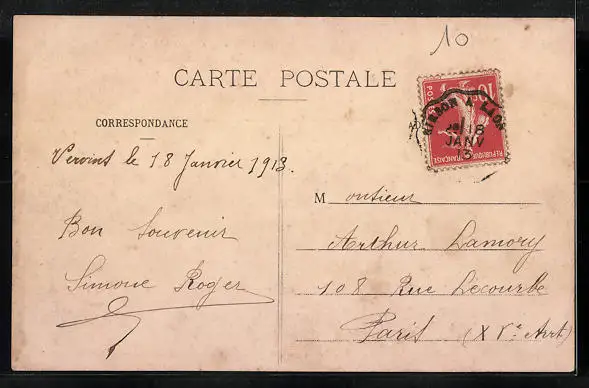 10
CARTE POSTALE
CORRESPONDANCE
Vervins le 18 Janvier 1913.
Bon Souvenir
Simone Roger
Monsieur
Arthur Lamory
108 Rue Lecourbe
Paris (XVe Arrt)
10
POSTES
REPUBLIQUE FRANÇAISE
HIRSON A LAON
18
JANV
13